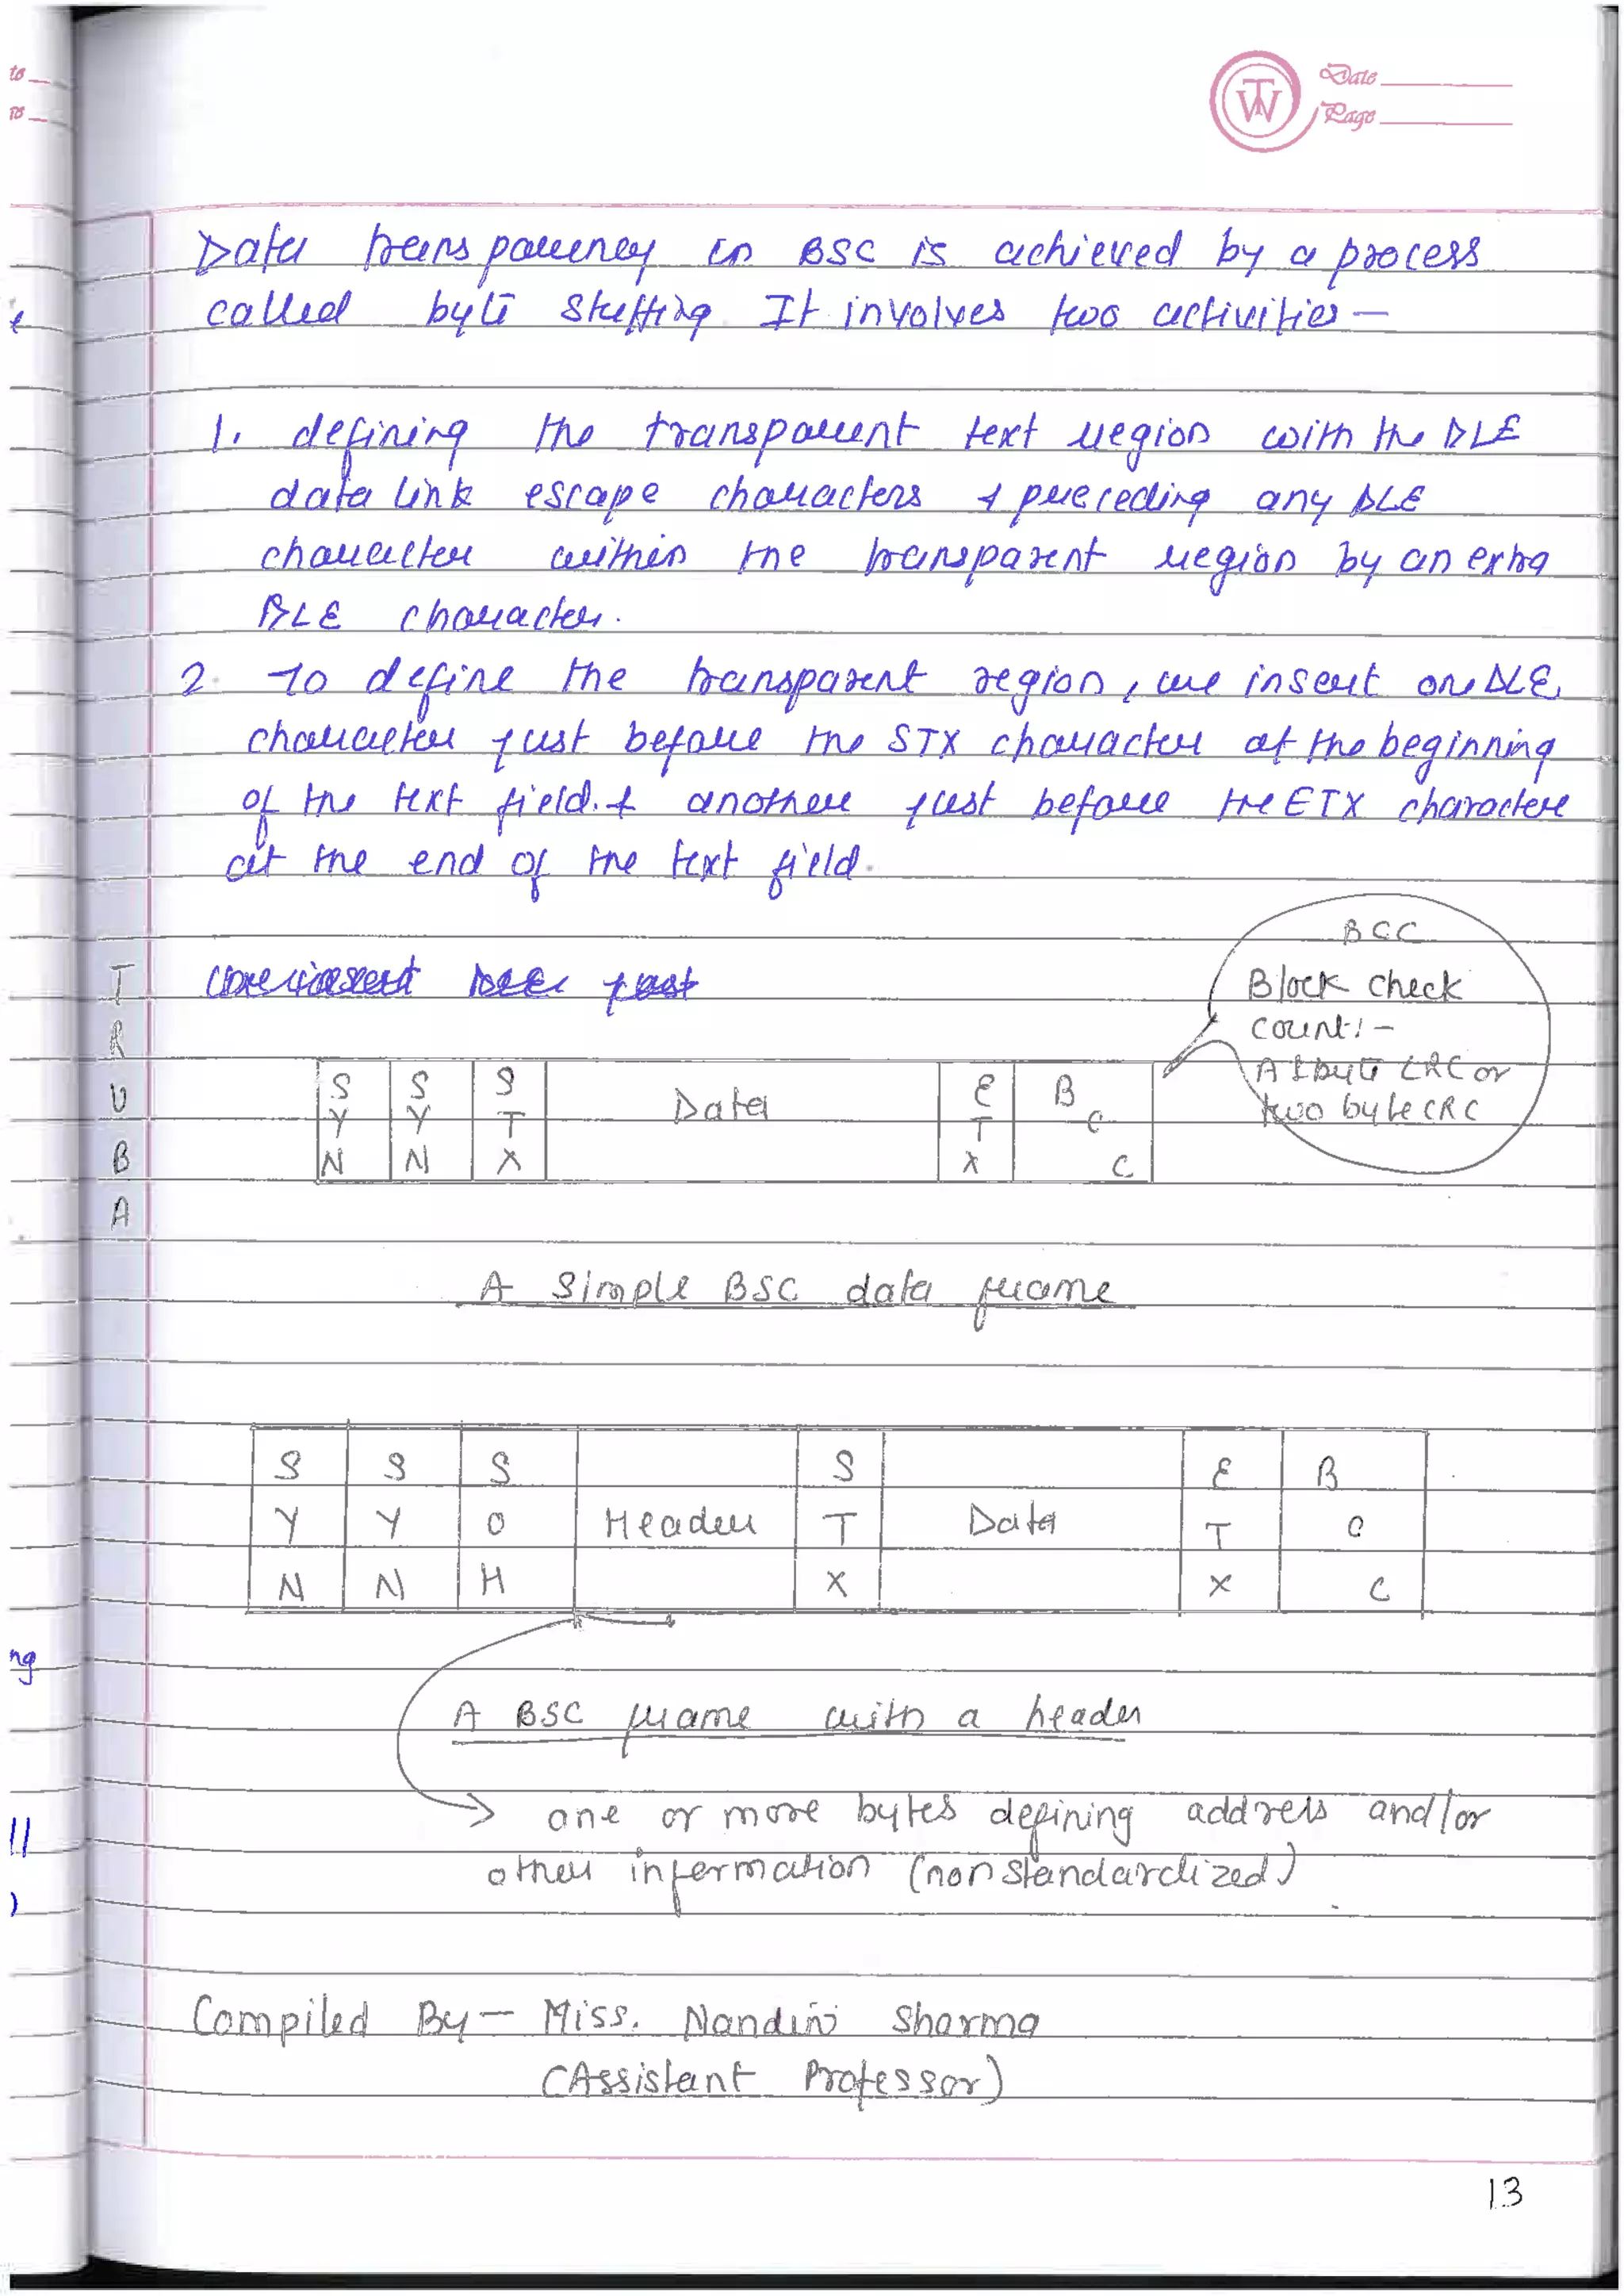 Date
Page
Data transparency in BSC is achieved by a process
called byte stuffing. It involves two activities —
1. defining the transparent text region with the DLE
data link escape characters & preceding any DLE
character within the transparent region by an extra
DLE character.
2. To define the transparent region, we insert one DLE
character just before the STX character at the beginning
of the text field. & another just before the ETX character
at the end of the text field.
BCC
Block check
count:-
A 1 byte LRC or
two byte CRC
TRUBA
SYN SYN STX Data ETX BCC
A Simple BSC data frame
SYN SYN SOH Header STX Data ETX BCC
A BSC frame with a header
one or more bytes defining address and/or
other information (non standardized)
Compiled By — Miss. Nandini Sharma
(Assistant Professor)
13
ng